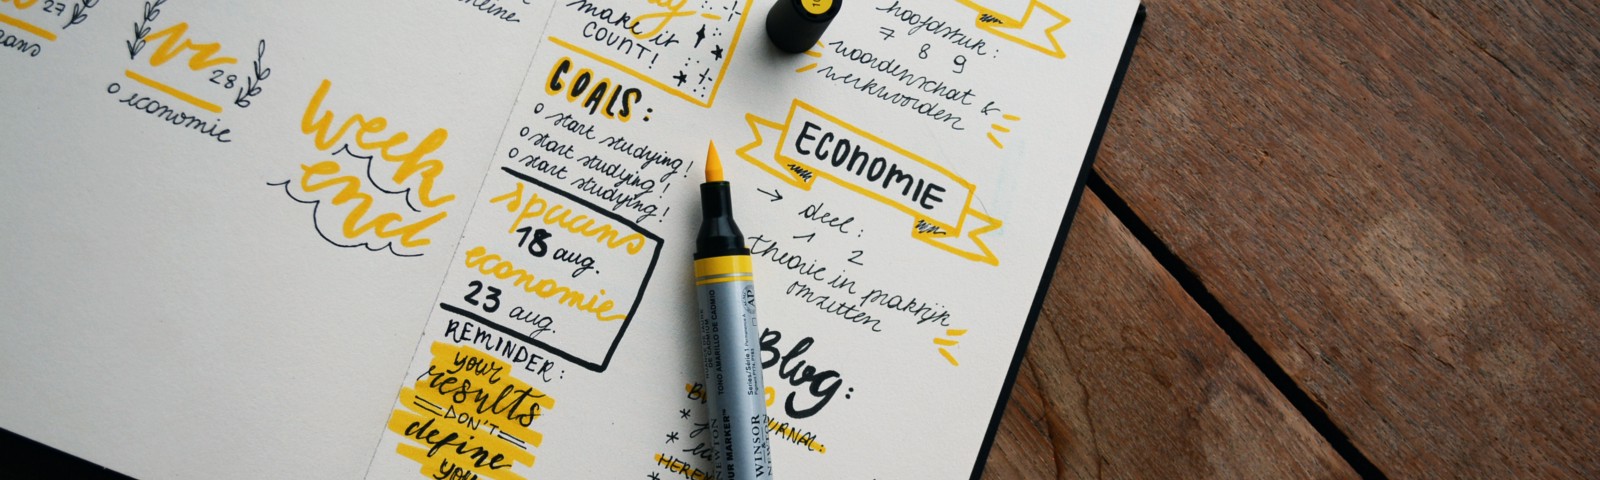 27
vr 28
o economie
week
end
make it
COUNT!
GOALS:
o start studying!
o start studying!
o start studying!
spaans
18 aug.
economie
23 aug.
REMINDER:
your
results
DON'T
define
you
hoofdstuk:
7 8 9
woordenschat &
werkwoorden
ECONOMIE
→ deel:
1 2
theorie in praktijk
omzetten
Blog:
HERE
TONO AMARILLO DE CADMIO
Series/Série 1
AP
WINSOR
NEWTON